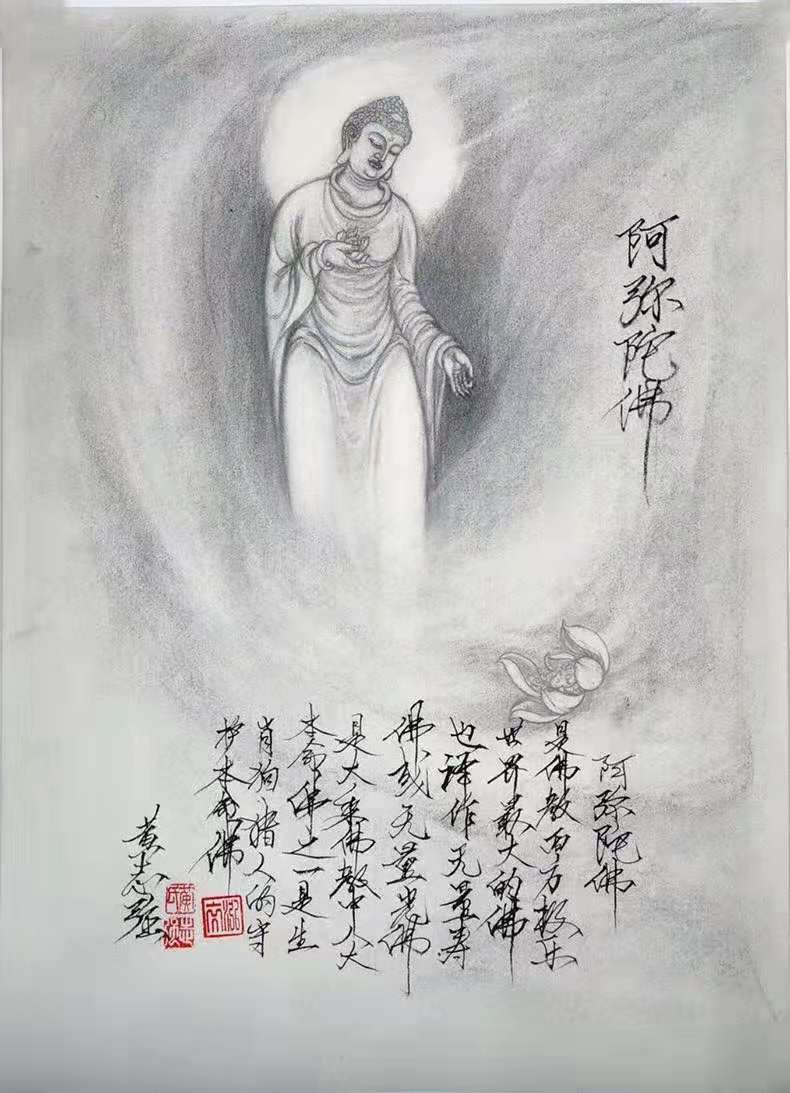 阿弥陀佛
阿弥陀佛
是佛教西方极乐
世界最大的佛
也译作无量寿
佛或无量光佛
是大乘佛教中八大
本命佛之一是生
肖狗猪人的守
护本命佛
黄志强